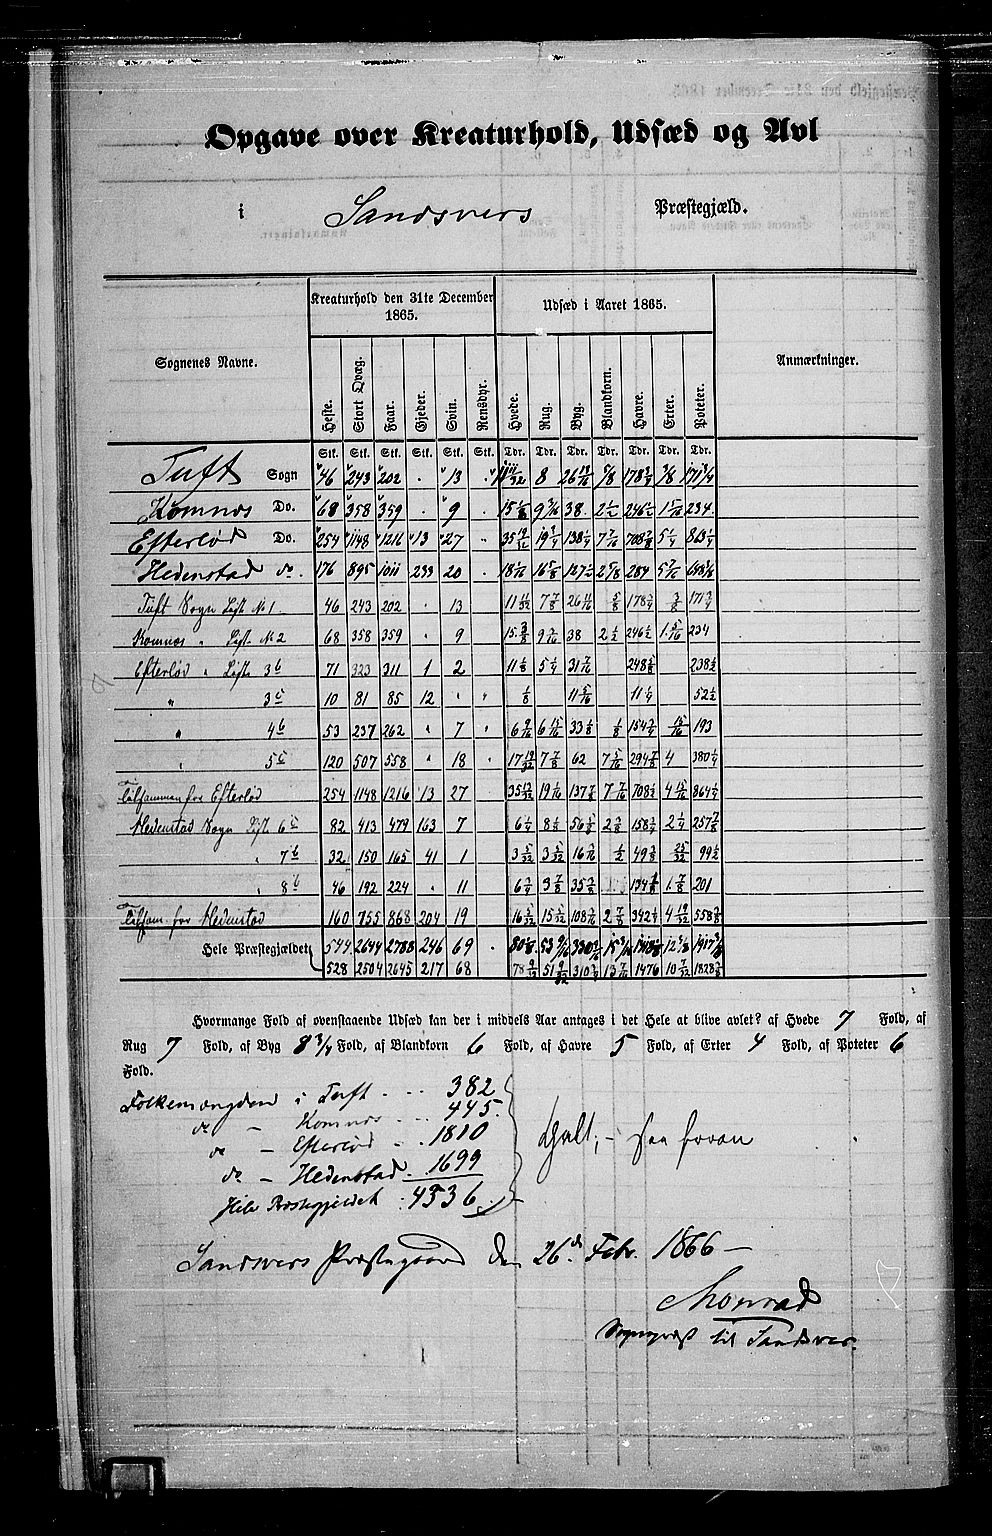 Opgave over Kreaturhold, Udsæd og Avl
i Sandsvers Præstegjæld.
Sognenes Navne. Kreaturhold den 31te December 1865. Udsæd i Aaret 1865. Anmærkninger.
Heste. Stort Qvæg. Faar. Gjeder. Svin. Rensdyr. Hvede. Rug. Byg. Blandkorn. Havre. Erter. Poteter.
Stk. Stk. Stk. Stk. Stk. Stk. Tdr. Tdr. Tdr. Tdr. Tdr. Tdr. Tdr.
Tuft Sogn 46 243 202 . 13 . 8 178 3/4 3/8 171 3/4
Komnes Do. 68 358 359 . 9 . 15 3/8 9 3/16 38. 2 1/2 246 1/2 1 5/16 234.
Efterløt Do. 254 1148 1216 13 27 " 35 19/32 19 3/4 138 1/4 7 7/16 708 5/8 5 1/4 863 1/4
Hedenstad do. 176 895 1011 233 20 . 16 5/8 2 5/8 284 5 7/16
Tuft Sogn List N1. 46 243 202 . 13 11 11/32 7 7/8 26 11/16 5/8 178 3/4 3/8 171 3/4
Komnes " List N2 68 358 359 . 9 15 3/8 9 3/16 38 2 1/2 246 1/2 1 5/16 234
Efterlød " List 3b 71 323 311 1 2 11 1/8 5 1/4 31 7/16 248 5/8 238 1/2
" 3c 10 81 85 12 " " 1/8 11 5/16 11 1/4 52 1/2
" 4b 53 237 262 " 7 " 6 9/16 6 15/16 33 1/8 1/8 154 3/4 15/16 193
" 5c 120 507 558 " 18 " 17 19/32 7 7/8 62 7 5/16 294 7/8 4 380 1/4
Tilsammen for Efterlød 254 1148 1216 13 27 35 13/32 19 1/16 137 7/8 7 7/16 708 1/2 4 15/16 864 1/4
Hedenstad Sogn List 6c 82 413 479 163 7 6 1/4 8 1/2 56 5/8 2 3/8 158 3/4 2 1/4 257 7/8
" 7b 32 150 165 41 1 3 5/32 3 5/32 16 3/16 1/2 49 3/8 25/32 99 1/2
" 8b 46 192 224 " 11 6 3/4 3 7/8 35 3/8 134 1/8 1 7/8 201
Tilsam for Hedenstad 160 755 868 204 19 16 5/32 15 17/32 108 3/16 2 7/8 342 1/4 4 19/32 558 3/8
Hele Præstegjældet 544 2644 2788 246 69 .
528 2504 2645 217 68 78 9/32 51 9/32 310 3/4 13 7/16 1476 10 7/32 1828 3/8
Hvormange Fold af ovenstaaende Udsæd kan der i middels Aar antages i det Hele at blive avlet? af Hvede 7 Fold, af
Rug 7 Fold, af Byg 8 3/4 Fold, af Blandkorn 6 Fold, af Havre 5 Fold, af Erter 4 Fold, af Poteter 6
Fold.
Folkemængden i Tuft . . . 382
do - Komnes . . . 445.
do - Efterlød . . 1810
do - Hedenstad . 1699
Hele Præstegjeldet . 4336
Talt, - saa foran
Sandsvers Præstegaard den 26de Febr. 1866 -
Monrad
Sognepræst til Sandsver.